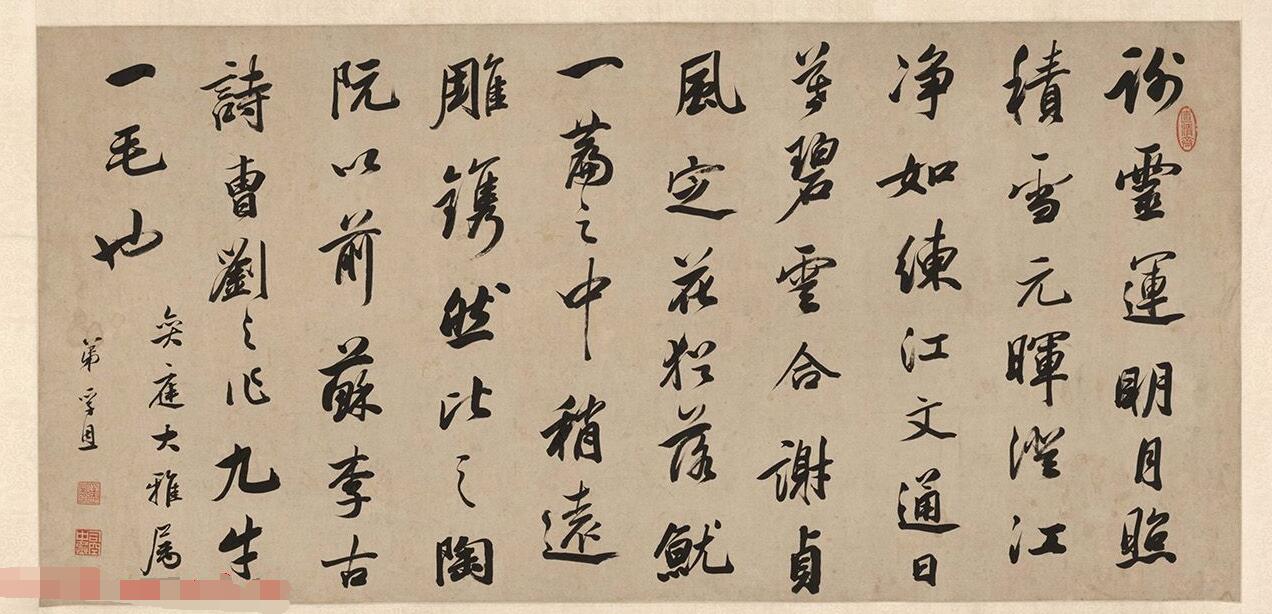 謝靈運明月照
積雪元暉澄江
净如練江文通日
暮碧雲合謝貞
風定花猶落就
一篇之中稍遠
雕鐫然比之陶
阮以前蘇李古
詩曹劉之作九牛
一毛也
奕庭大雅屬
弟孚恩